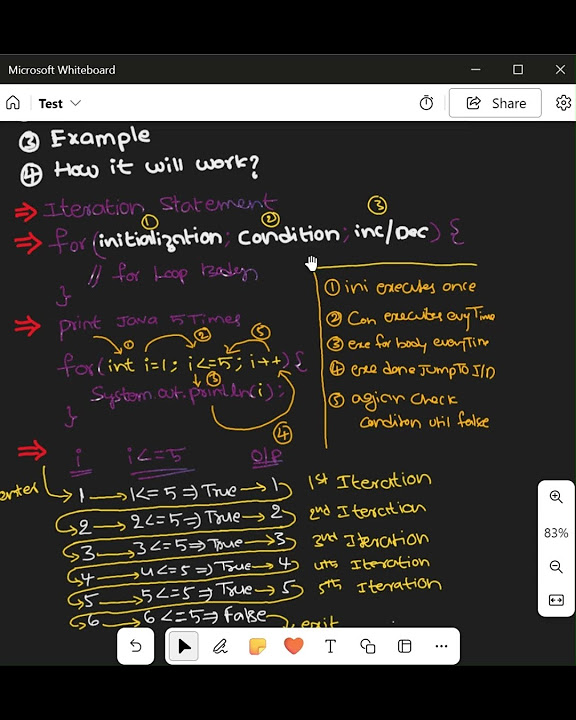 Microsoft Whiteboard
Test
Share
③ Example
④ How it will work?
⇒ Iteration Statement
① ② ③
⇒ for (initialization; condition; inc/Dec) {
// for Loop Body
}
① ini executes once
② Con executes evryTime
③ exe for body everyTime
④ exe done JumpTo I/D
⑤ agian check
condition util false
⇒ print Java 5 Times
① ② ⑤
for(int i=1; i<=5; i++) {
③
System.out.println(i);
}
④
⇒ i i<=5 O/P
enter 1 → 1<=5 ⇒ True → 1 1st Iteration
2 → 2<=5 ⇒ True → 2 2nd Iteration
3 → 3<=5 ⇒ True → 3 3rd Iteration
4 → 4<=5 ⇒ True → 4 4th Iteration
5 → 5<=5 ⇒ True → 5 5th Iteration
6 → 6<=5 ⇒ False exit
83%
T